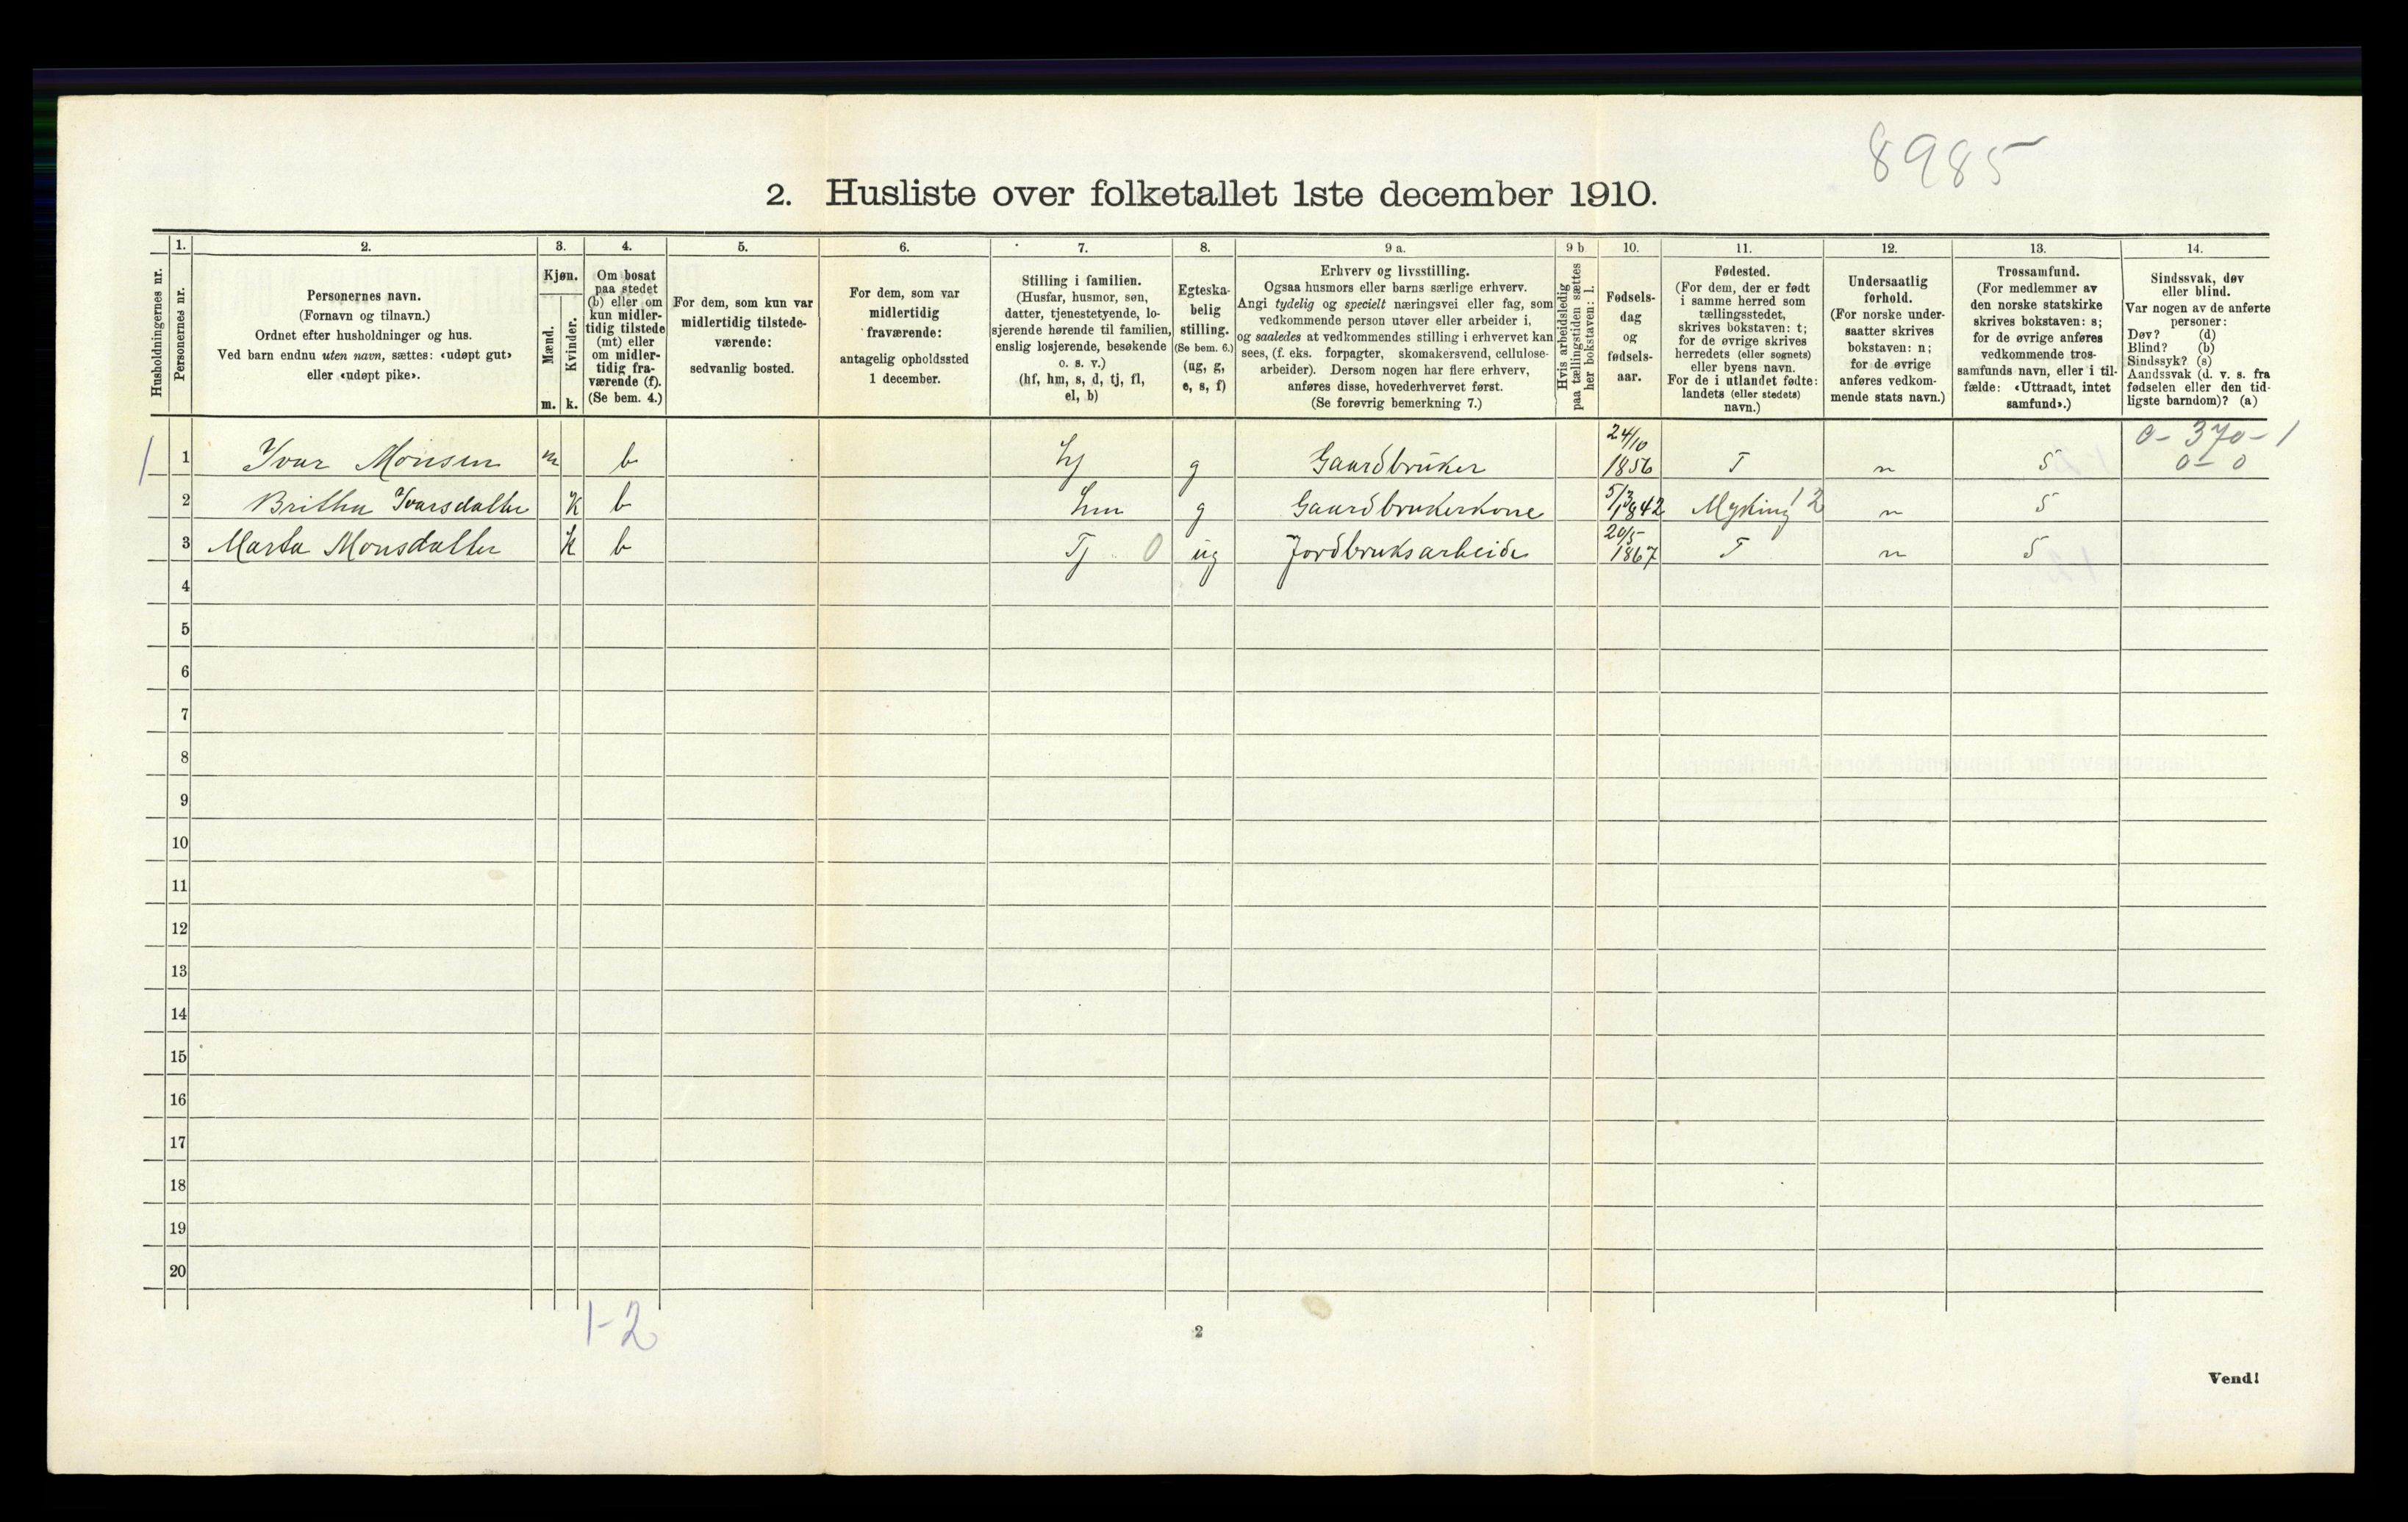 8985
2. Husliste over folketallet 1ste december 1910.
Husholdningernes nr.
1.
Personernes nr.
2.
Personernes navn.
(Fornavn og tilnavn.)
Ordnet efter husholdninger og hus.
Ved barn endnu uten navn, sættes: «udøpt gut»
eller «udøpt pike».
3.
Kjøn.
Mænd.
m.
Kvinder.
k.
4.
Om bosat
paa stedet
(b) eller om
kun midler-
tidig tilstede
(mt) eller
om midler-
tidig fra-
værende (f).
(Se bem. 4.)
5.
For dem, som kun var
midlertidig tilstede-
værende:
sedvanlig bosted.
6.
For dem, som var
midlertidig
fraværende:
antagelig opholdssted
1 december.
7.
Stilling i familien.
(Husfar, husmor, søn,
datter, tjenestetyende, lo-
sjerende hørende til familien,
enslig losjerende, besøkende
o. s. v.)
(hf, hm, s, d, tj, fl,
el, b)
8.
Egteska-
belig
stilling.
(Se bem. 6.)
(ug, g,
e, s, f)
9 a.
Erhverv og livsstilling.
Ogsaa husmors eller barns særlige erhverv.
Angi tydelig og specielt næringsvei eller fag, som
vedkommende person utøver eller arbeider i,
og saaledes at vedkommendes stilling i erhvervet kan
sees, (f. eks. forpagter, skomakersvend, cellulose-
arbeider). Dersom nogen har flere erhverv,
anføres disse, hovederhvervet først.
(Se forøvrig bemerkning 7.)
9 b
Hvis arbeidsledig
paa tællingstiden sættes
her bokstaven: l.
10.
Fødsels-
dag
og
fødsels-
aar.
11.
Fødested.
(For dem, der er født
i samme herred som
tællingsstedet,
skrives bokstaven: t;
for de øvrige skrives
herredets (eller sognets)
eller byens navn.
For de i utlandet fødte:
landets (eller stedets)
navn.)
12.
Undersaatlig
forhold.
(For norske under-
saatter skrives
bokstaven: n;
for de øvrige
anføres vedkom-
mende stats navn.)
13.
Trossamfund.
(For medlemmer av
den norske statskirke
skrives bokstaven: s;
for de øvrige anføres
vedkommende tros-
samfunds navn, eller i til-
fælde: «Uttraadt, intet
samfund».)
14.
Sindssvak, døv
eller blind.
Var nogen av de anførte
personer:
Døv? (d)
Blind? (b)
Sindssyk? (s)
Aandssvak (d. v. s. fra
fødselen eller den tid-
ligste barndom)? (a)
0-370-1
0-0
1 1 Ivar Monsen m b hf g Gaardbruker 24/10 1856 T n S
2 Britha Ivarsdatter K b hm g Gaardbrukerkone 5/3 1842 Myking 12 n S
3 Marta Monsdatter k b Tj 0 ug Jordbruksarbeide 20/5 1867 T n S
4
5
6
7
8
9
10
11
12
13
14
15
16
17
18
19
20
1-2
2
Vend!